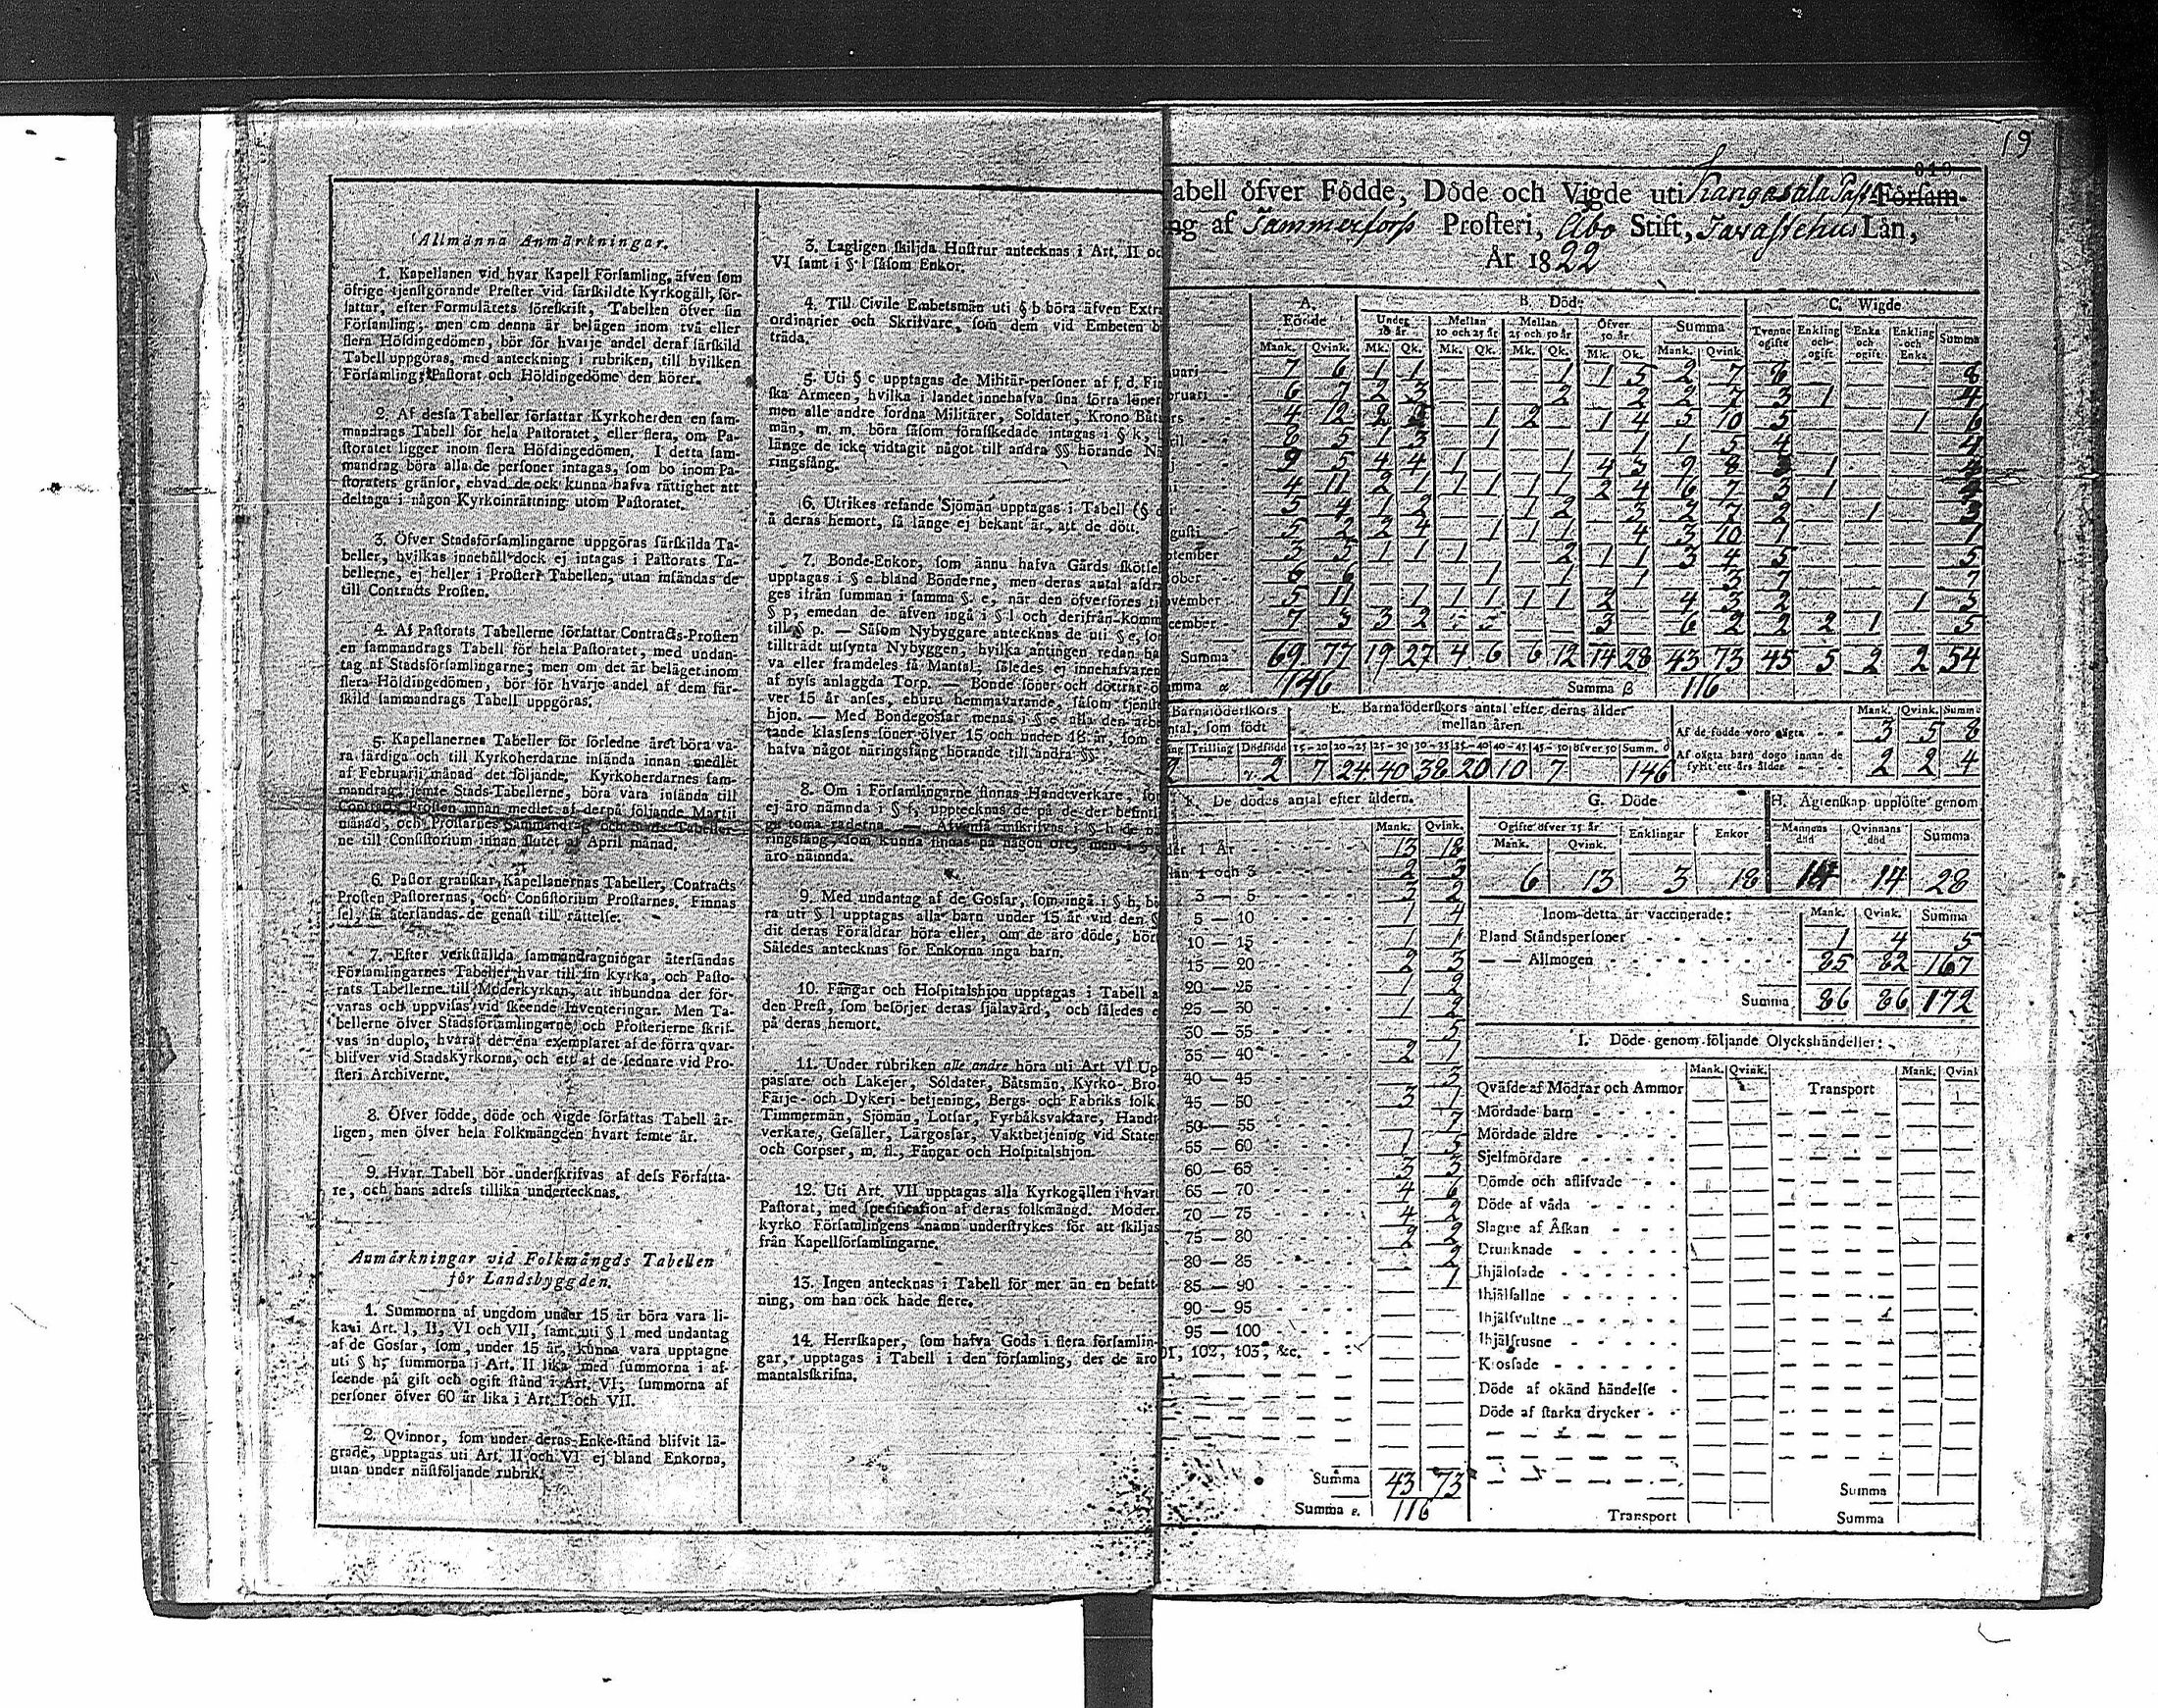 Allmänna Anmärkningar.
1. Kapellanen vid hvar Kapell Församling, äfven som
öfrige tjenstgörande Prester vid särskildte Kyrkogäll, för-
fattar, efter Formulärets föreskrift, Tabellen öfver sin
Församling; men om denna är belägen inom två eller
flera Höfdingedömen, bör för hvarje andel deraf särskild
Tabell uppgöras, med anteckning i rubriken, till hvilken
Församling, Pastorat och Höfdingedöme den hörer.
2. Af dessa Tabeller författar Kyrkoherden en sam-
mandrags Tabell för hela Pastoratet, eller flera, om Pa-
storatet ligger inom flera Höfdingedömen. I detta sam-
mandrag böra alla de personer intagas, som bo inom Pa-
storatets gränsor, ehvad de ock kunna hafva rättighet att
deltaga i någon Kyrkoinrättning utom Pastoratet.
3. Öfver Stadsförsamlingarne uppgöras särskilda Ta-
beller, hvilkas innehåll dock ej intagas i Pastorats Ta-
bellerne, ej heller i Prosteri Tabellen, utan insändas de
till Contracts Prosten.
4. Af Pastorats Tabellerne författar Contracts-Prosten
en sammandrags Tabell för hela Pastoratet, med undan-
tag af Stadsförsamlingarne; men om det är beläget inom
flera Höfdingedömen, bör för hvarje andel af dem sär-
skild sammandrags Tabell uppgöras.
5. Kapellanernes Tabeller för förledne året böra va-
ra färdiga och till Kyrkoherdarne insända innan medlet
af Februarii månad det följande, Kyrkoherdarnes sam-
mandrag, jemte Stads-Tabellerne, böra vara insända till
Contracts Prosten innan medlet af derpå följande Martii
månad, och Prostarnes Sammandrag och Stads-Tabeller-
ne till Consistorium innan slutet af April månad.
6. Pastor granskar Kapellanernas Tabeller, Contracts
Prosten Pastorernas, och Consistorium Prostarnes. Finnas
fel, så återsändas de genast till rättelse.
7. Efter verkställda sammandragningar återsändas
Församlingarnes Tabeller hvar till sin kyrka, och Pasto-
rats Tabellerne till Moderkyrkan, att inbundna der för-
varas och uppvisas vid skeende Inventeringar. Men Ta-
bellerne öfver Stadsförsamlingarne och Prosterierne skrif-
vas in duplo, hvaraf det ena exemplaret af de förra qvar-
blifver vid Stadskyrkorna, och ett af de sednare vid Pro-
steri Archiverne.
8. Öfver födde, döde och vigde författas Tabell år-
ligen, men öfver hela Folkmängden hvart femte år.
9. Hvar Tabell bör underskrifvas af dess Författa-
re, och hans adress tillika undertecknas.
Anmärkningar vid Folkmängds Tabellen
för Landsbyggden.
1. Summorna af ungdom under 15 år böra vara li-
ka i Art. I, II, VI och VII, samt uti § l med undantag
af de Gossar, som, under 15 år, kunna vara upptagne
uti § h; summorna i Art. II lika med summorna i af-
seende på gift och ogift stånd i Art. VI; summorna af
personer öfver 60 år lika i Art. I och VII.
2. Qvinnor, som under deras Enke-stånd blifvit lä-
grade, upptagas uti Art. II och VI ej bland Enkorna,
utan under nästföljande rubrik.
3. Lagligen skiljda Hustrur antecknas i Art. II oc
VI samt i § l såsom Enkor.
4. Till Civile Embetsmän uti § b böra äfven Extra
ordinarier och Skrifvare, som dem vid Embeten b
träda.
5. Uti § c upptagas de Militär-personer af f. d. Fin
ska Armeen, hvilka i landet innehafva sina förra löner
men alle andre fordna Militärer, Soldater, Krono Båts
män, m. m. böra såsom förafskedade intagas i § k,
länge de icke vidtagit något till andra §§ hörande Nä
ringsfång.
6. Utrikes resande Sjömän upptagas i Tabell (§ d
å deras hemort, så länge ej bekant är, att de dött.
7. Bonde-Enkor, som ännu hafva Gårds skötsel
upptagas i § e bland Bönderne, men deras antal afdra
ges ifrån summan i samma §. e, när den öfverföres til
§ p, emedan de äfven ingå i § l och derifrån komm
till § p. — Såsom Nybyggare antecknas de uti § e, so
tillträdt utsynta Nybyggen, hvilka antingen redan ha
va eller framdeles få Mantal; således ej innehafvaren
af nyss anlaggda Torp. — Bonde söner och döttrar ö
ver 15 år anses, ehuru hemmavarande, såsom tjenste
hjon. — Med Bondegossar menas i § e alla den arbe
tande klassens söner öfver 15 och under 18 år, som
hafva något näringsfång hörande till andra §§.
8. Om i Församlingarne finnas Handtverkare, so
ej äro nämnda i § f, upptecknas de på de der befintl
ga toma raderna. — Äfvenså inskrifvas i § h de nä
ringsfång, som kunna finnas på någon ort, men i §
äro nämnda.
9. Med undantag af de Gossar, som ingå i § h, bö
ra uti § l upptagas alla barn under 15 år vid den §
dit deras Föräldrar höra eller, om de äro döde, hört
Således antecknas för Enkorna inga barn.
10. Fångar och Hospitalshjon upptagas i Tabell a
den Prest, som besörjer deras själavård, och således e
på deras hemort.
11. Under rubriken alle andre höra uti Art VI Up
passare och Lakejer, Soldater, Båtsmän, Kyrko- Bro
Färje- och Dykeri-betjening, Bergs- och Fabriks folk,
Timmermän, Sjömän, Lotsar, Fyrbåksvaktare, Handt
verkare, Gesäller, Lärgossar, Vaktbetjening vid Stater
och Corpser, m. fl., Fångar och Hospitalshjon.
12. Uti Art. VII upptagas alla Kyrkogällen i hvart
Pastorat, med specification af deras folkmängd. Moder-
kyrko Församlingens namn understrykes för att skiljas
från Kapellförsamlingarne.
13. Ingen antecknas i Tabell för mer än en befatt-
ning, om han ock hade flere.
14. Herrskaper, som hafva Gods i flera församlin-
gar, upptagas i Tabell i den församling, der de äro
mantalsskrifna.
19
abell öfver Födde, Döde och Vigde uti Kangasala Past. Försam-
ng af Tammerfors Prosteri, Åbo Stift, Tavastehus Län,
År 1822
A. Födde B. Döde C. Wigde
Under 10 år Mellan 10 och 25 år Mellan 25 och 50 år Öfver 50 år Summa Tvenne ogifte Enkling och ogift Enka och ogift Enkling och Enka Summa
Mank. Qvink. Mk. Qk. Mk. Qk. Mk. Qk. Mk. Qk. Mank. Qvink.
uari 7 6 1 1 1 1 5 2 7 8 8
bruari 6 7 2 3 2 2 2 7 3 1 4
rs 4 12 2 1 2 1 4 5 10 5 1 6
ril 8 5 1 3 1 1 1 5 4 4
j 9 5 4 4 1 1 4 3 9 8 1
i 4 11 2 1 1 1 1 1 2 4 6 7 3 1
5 4 1 2 1 2 3 2 7 2 1 3
gusti 5 2 2 4 1 1 1 4 3 10 1 1
tember 3 5 1 1 1 2 1 1 3 4 5 5
ober 6 6 1 1 1 3 7 7
vember 5 11 1 1 1 1 1 2 4 3 2 1 3
cember 7 3 3 2 3 6 2 2 2 1 5
Summa 69 77 19 27 4 6 6 12 14 28 43 73 45 5 2 2 54
mma α 146 Summa β 116
Barnaföderskors
ntal, som födt
Trilling Dödfödd
2 2
E. Barnaföderskors antal efter deras ålder
mellan åren
15-20 20-25 25-30 30-35 35-40 40-45 45-50 öfver 50 Summ. δ
7 24 40 38 20 10 7 146
Mank. Qvink. Summa
Af de födde voro oägta 3 5 8
Af oägta barn dogo innan de
fyllt ett års ålder 2 2 4
F. De dödes antal efter åldern.
Mank. Qvink.
der 1 År 13 18
lan 1 och 3 2 3
3 — 5 3 2
5 — 10 1 4
10 — 15 1 1
15 — 20 2 3
20 — 25 1 2
25 — 30 1 2
30 — 35 5
35 — 40 2 1
40 — 45 3
45 — 50 3 1
50 — 55 7
55 — 60 1 5
60 — 65 3 3
65 — 70 4 6
70 — 75 4 2
75 — 80 2 2
80 — 85 2
85 — 90 1
90 — 95
95 — 100
01, 102, 103, &c.
Summa 43 73
Summa ε. 116
G. Döde
Ogifte öfver 15 år Enklingar Enkor
Mank. Qvink.
6 13 3 18
H. Ägtenskap upplöste genom
Mannens död Qvinnans död Summa
14 14 28
Inom detta år vaccinerade: Mank. Qvink. Summa
Bland Ståndspersoner 1 4 5
— — Allmogen 85 82 167
Summa 86 86 172
I. Döde genom följande Olyckshändelser:
Mank. Qvink. Mank. Qvink
Qväfde af Mödrar och Ammor Transport
Mördade barn
Mördade äldre
Sjelfmördare
Dömde och aflifvade
Döde af våda
Slagne af Åskan
Drunknade
Ihjälosade
Ihjälfallne
Ihjälsvultne
Ihjälfrusne
Krossade
Döde af okänd händelse
Döde af starka drycker
Summa
Transport Summa